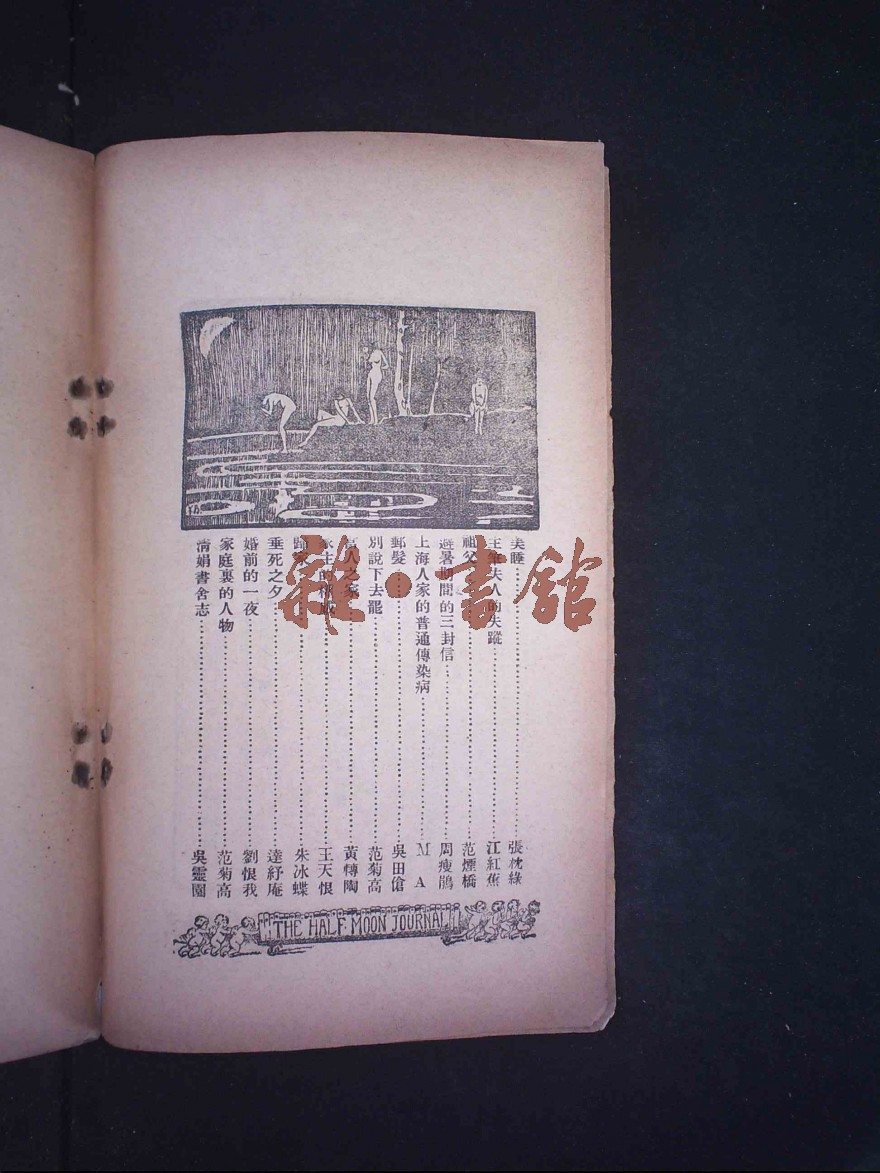 美睡 張枕綠
夫人的失蹤 江紅蕉
祖父 范煙橋
避暑期間的三封信 周瘦鵑
上海人家的普通傳染病 M A
郵髮 吳田傖
別說下去罷 范菊高
之家 黃轉陶
家主的 王天恨
歸家 朱冰蝶
垂死之夕 達紓庵
婚前的一夜 劉恨我
家庭裏的人物 范菊高
清娟書舍志 吳靈園
THE HALF MOON JOURNAL
雜·書館